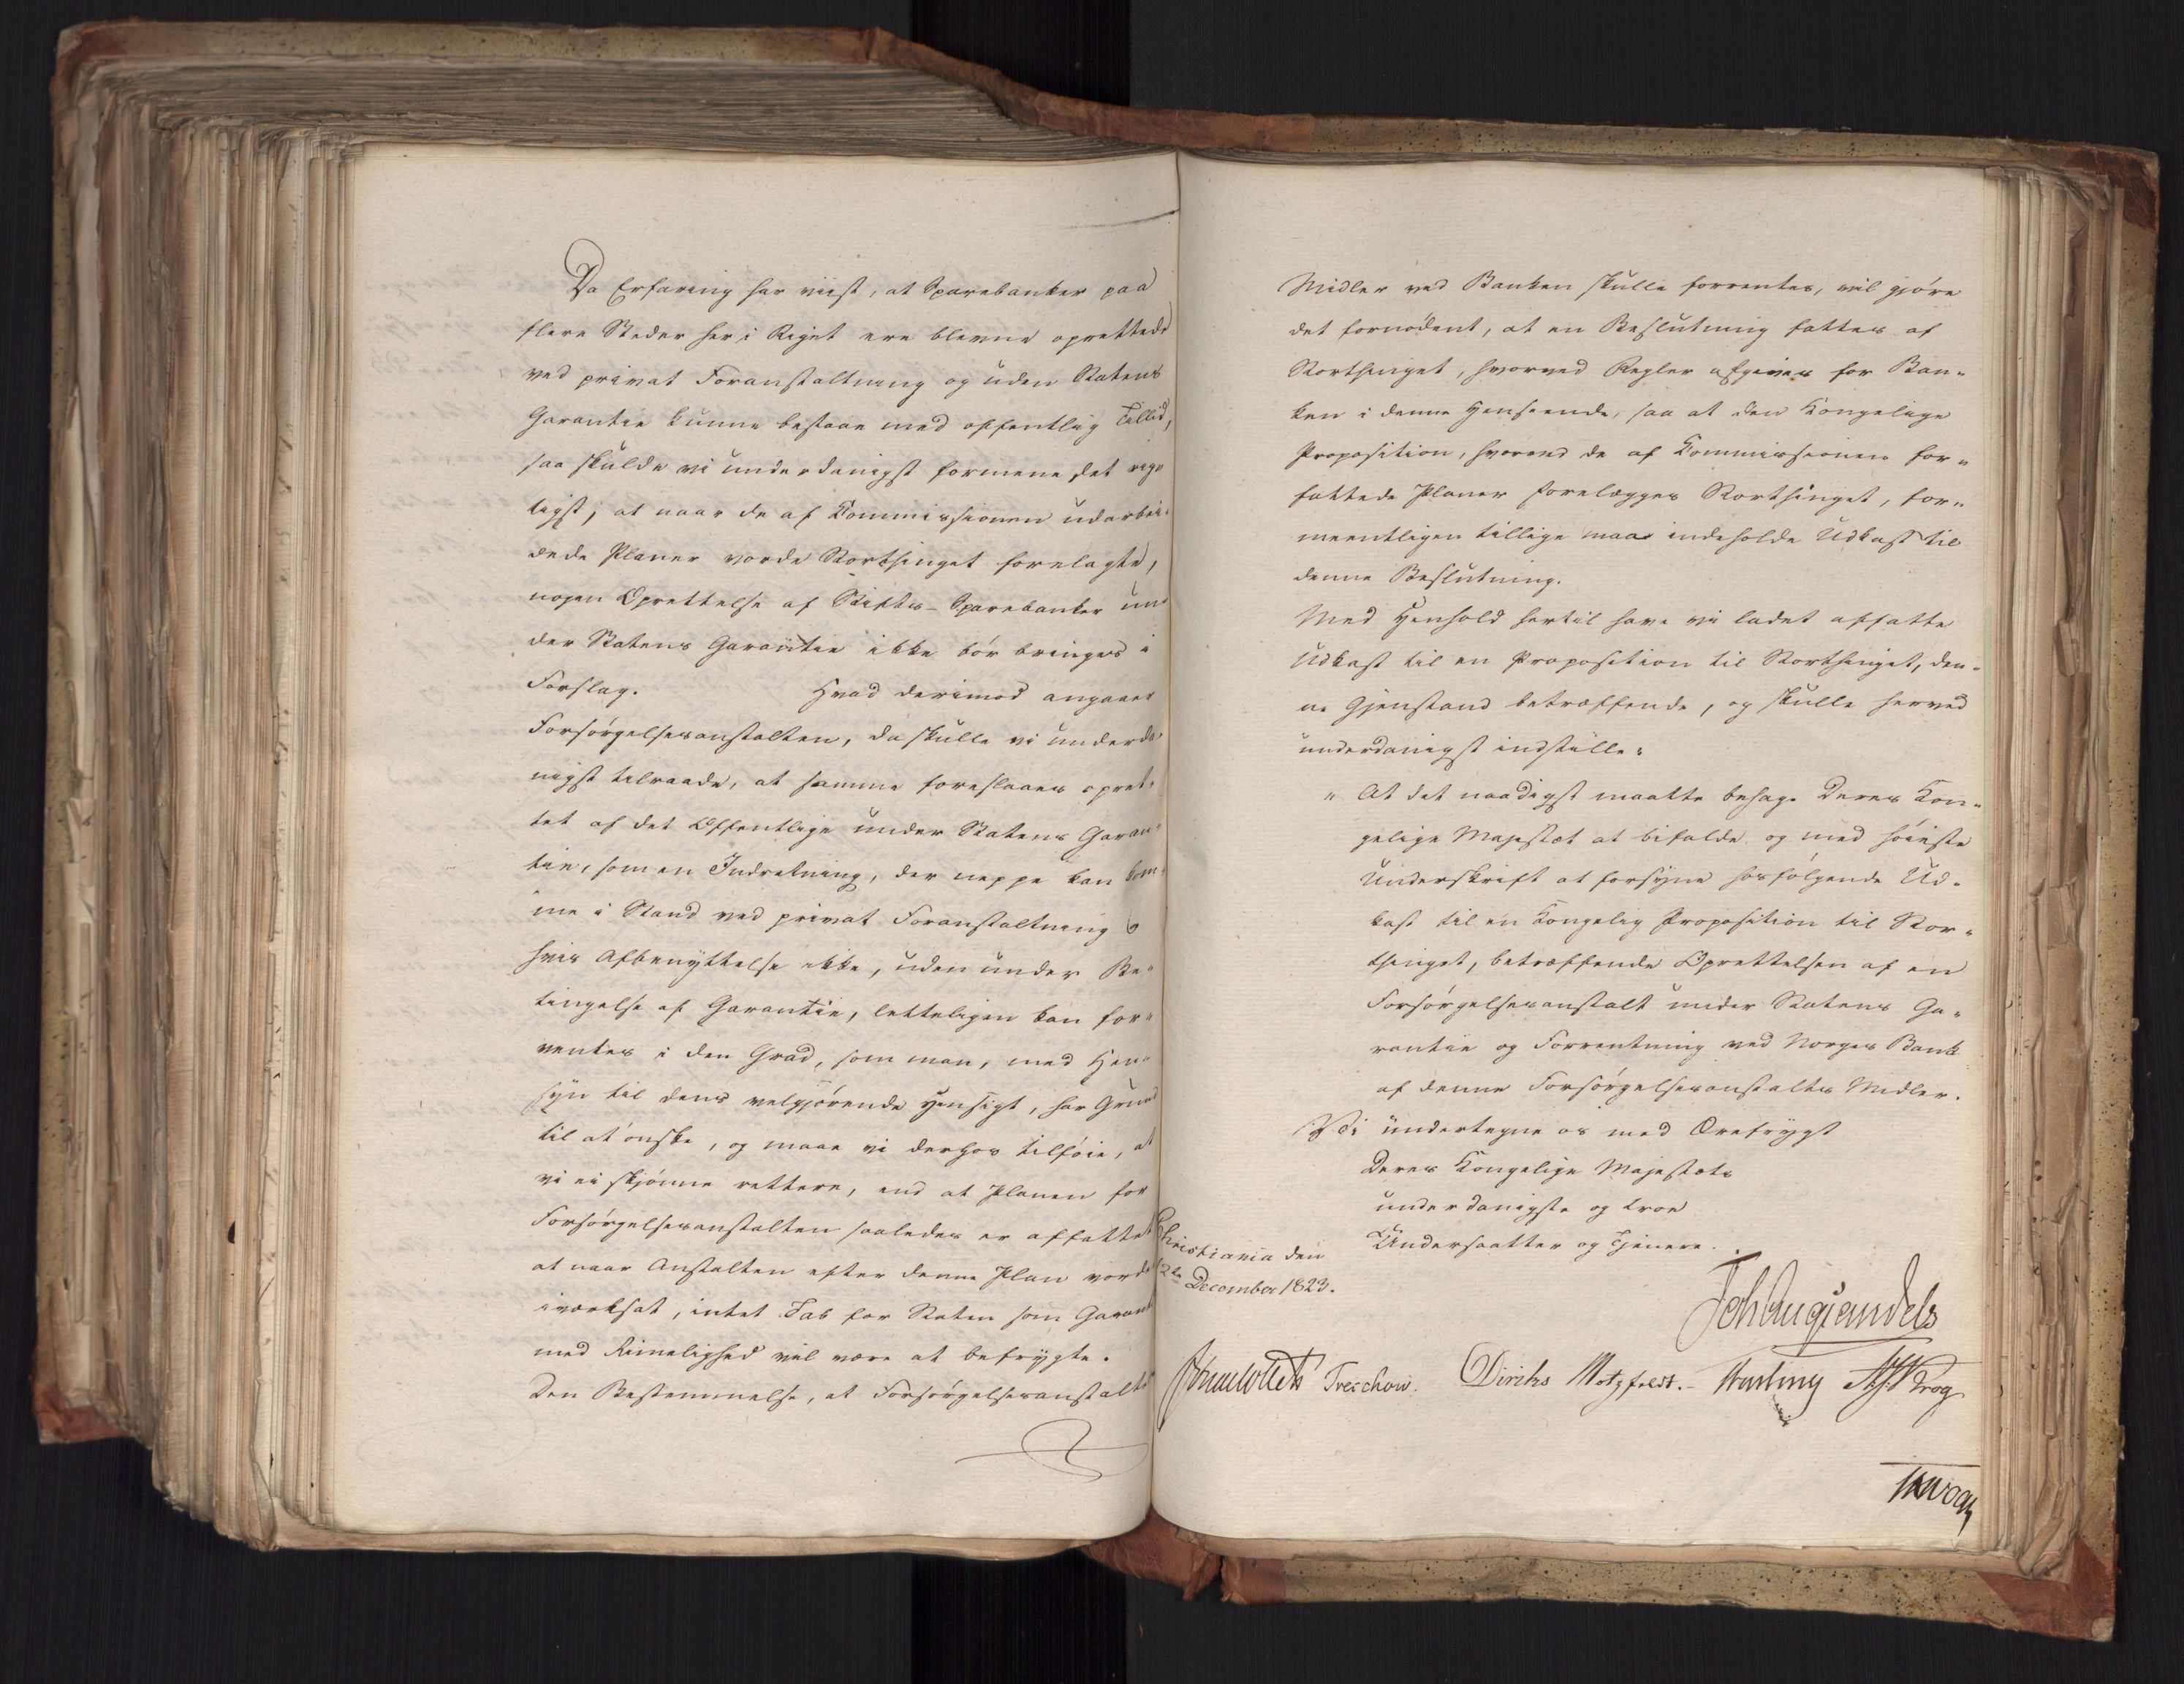 Da Erfaring har viist, at Sparebanker paa
flere Steder her i Riget ere blevne oprettede
ved privat Foranstaltning og uden Statens
Garantie kunne bestaae med offentlig Tillid,
saa skulde vi underdanigst formene det rig„
tigst, at naar de af Commissionen udarbei„
dede Planer vorde Storthinget forelagte,
nogen Oprettelse af Stifts-Sparebanker un„
der Statens Garantie ikke bør bringes i
Forslag. Hvad derimod angaaer
Forsørgelsesanstalten, da skulle vi underda„
nigst tilraade, at samme foreslaaes opret„
tet af det Offentlige under Statens Garan„
tie, som en Indretning, der neppe kan kom„
me i Stand ved privat Foranstaltning &
hvis Afbenyttelse ikke, uden under Be„
tingelse af Garantie, letteligen kan for„
ventes i den Grad, som man, med Hen„
syn til dens velgjørende Hensigt, har Grund
til at ønske, og maae vi derhos tilføie, at
vi ei skjønne rettere, end at Planen for
Forsørgelsesanstalten saaledes er affattet
at naar Anstalten efter denne Plan vorder
iværksat, intet Tab for Staten som Garant
med Rimelighed vil være at befrygte.
Den Bestemmelse, at Forsørgelsesanstaltens
Midler ved Banken skulle forrentes, vil gjøre
det fornødent, at en Beslutning fattes af
Storthinget, hvorved Regler afgives for Ban„
ken i denne Henseende, saa at den Kongelige
Proposition, hvorved de af Commissionen for„
fattede Planer forelægges Storthinget, for„
meentligen tillige maae indeholde Udkast til
denne Beslutning.
Med Henhold hertil have vi ladet affatte
Udkast til en Proposition til Storthinget, den„
ne Gjenstand betræffende, og skulle herved
underdanigst indstille:
„ At det naadigst maatte behage Deres Kon„
gelige Majestæt at bifalde og med høieste
Underskrift at forsyne hosfølgende Ud„
kast til en Kongelig Proposition til Stor„
thinget, betræffende Oprettelsen af en
Forsørgelsesanstalt under Statens Ga„
rantie og Forrentning ved Norges Bank
af denne Forsørgelsesanstalts Midler.
Vi undertegne os med Ærefrygt
Deres Kongelige Majestæts
underdanigste og troe
Undersaatter og Tjenere.
Christiania den
12te December 1823.
Joh Aug Sandels
Treschow. Diriks Motzfeldt. Krog